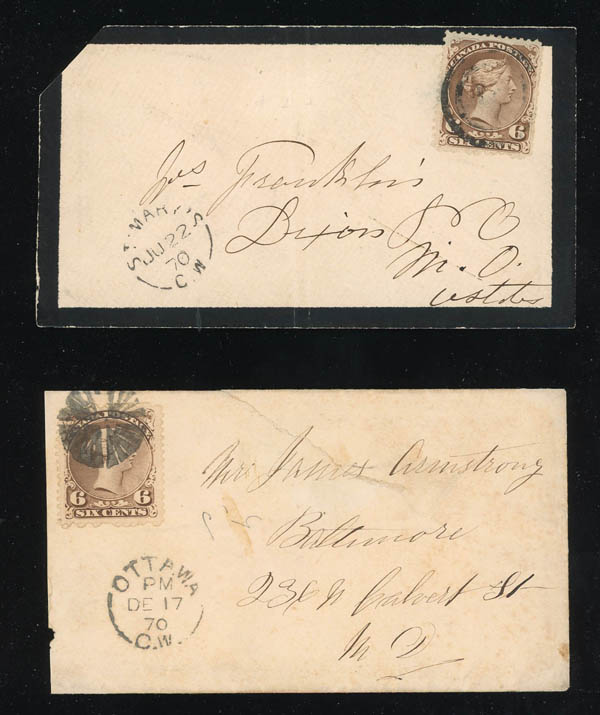 CANADA POSTAGE
6
SIX CENTS
Jas Franklin
Dixons P O
M. O.
ST. MARYS
JU 22
70
C.W
CANADA POSTAGE
6 6
SIX CENTS
Mr. James Armstrong
Baltimore
236 N Calvert St
M D
OTTAWA
PM
DE 17
70
C.W.